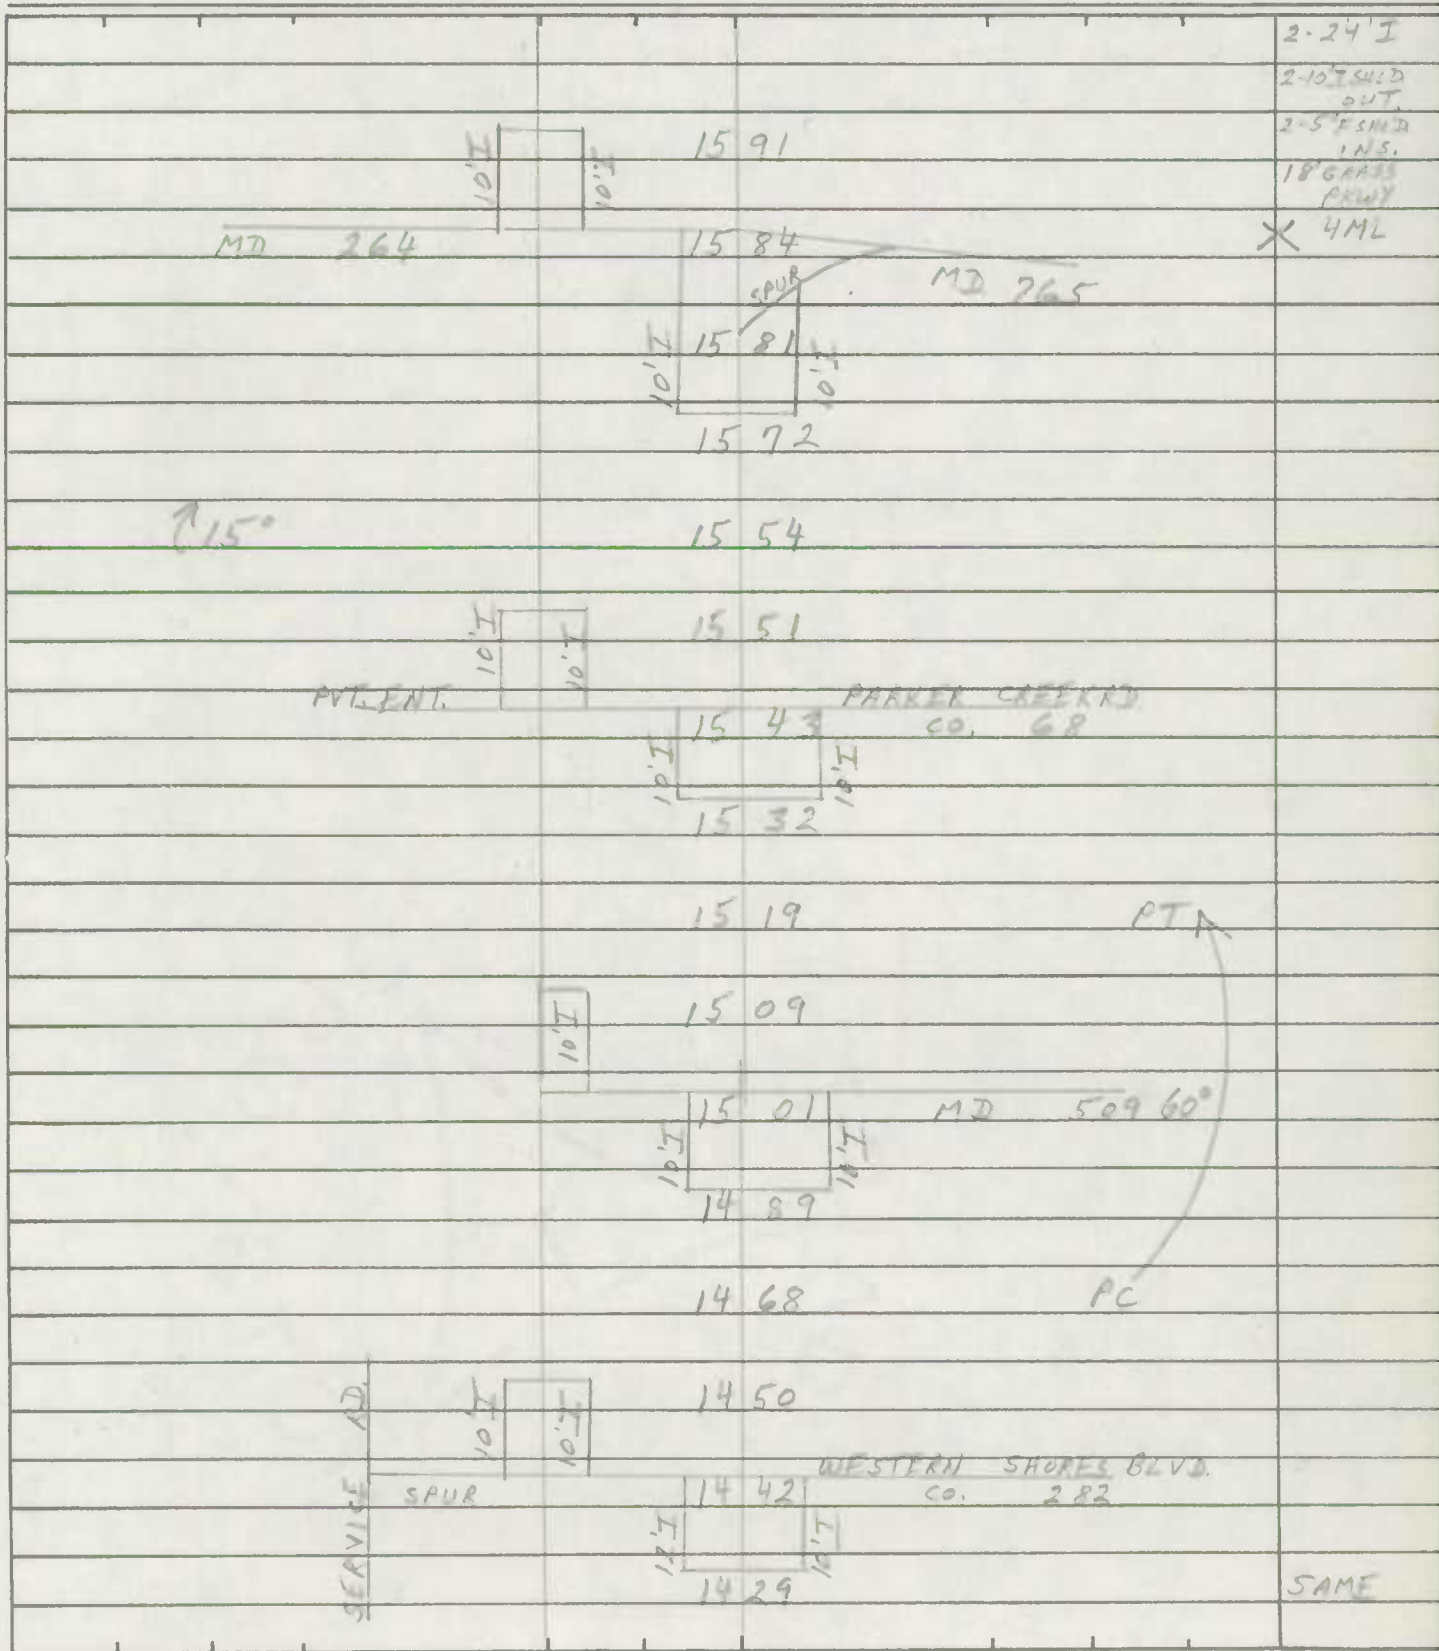 2-24' I
2-10' I SHLD
OUT.
2-5' I SHLD
INS.
18' GRASS
PKWY
4ML
10' I 10' I 15 91
MD 264 15 84
SPUR MD 765
10' I 15 81 10' I
15 72
15° 15 54
10' I 10' I 15 51
PVT. ENT. PARKER CREEK RD
15 43 CO. 68
10' I 10' I
15 32
15 19 PT
10' I 15 09
15 01 MD 509 60°
10' I 10' I
14 89
14 68 PC
SERVICE RD. 10' I 10' I 14 50
WESTERN SHORES BLVD.
SPUR 14 42 CO. 282
12' I 10' I
14 29 SAME